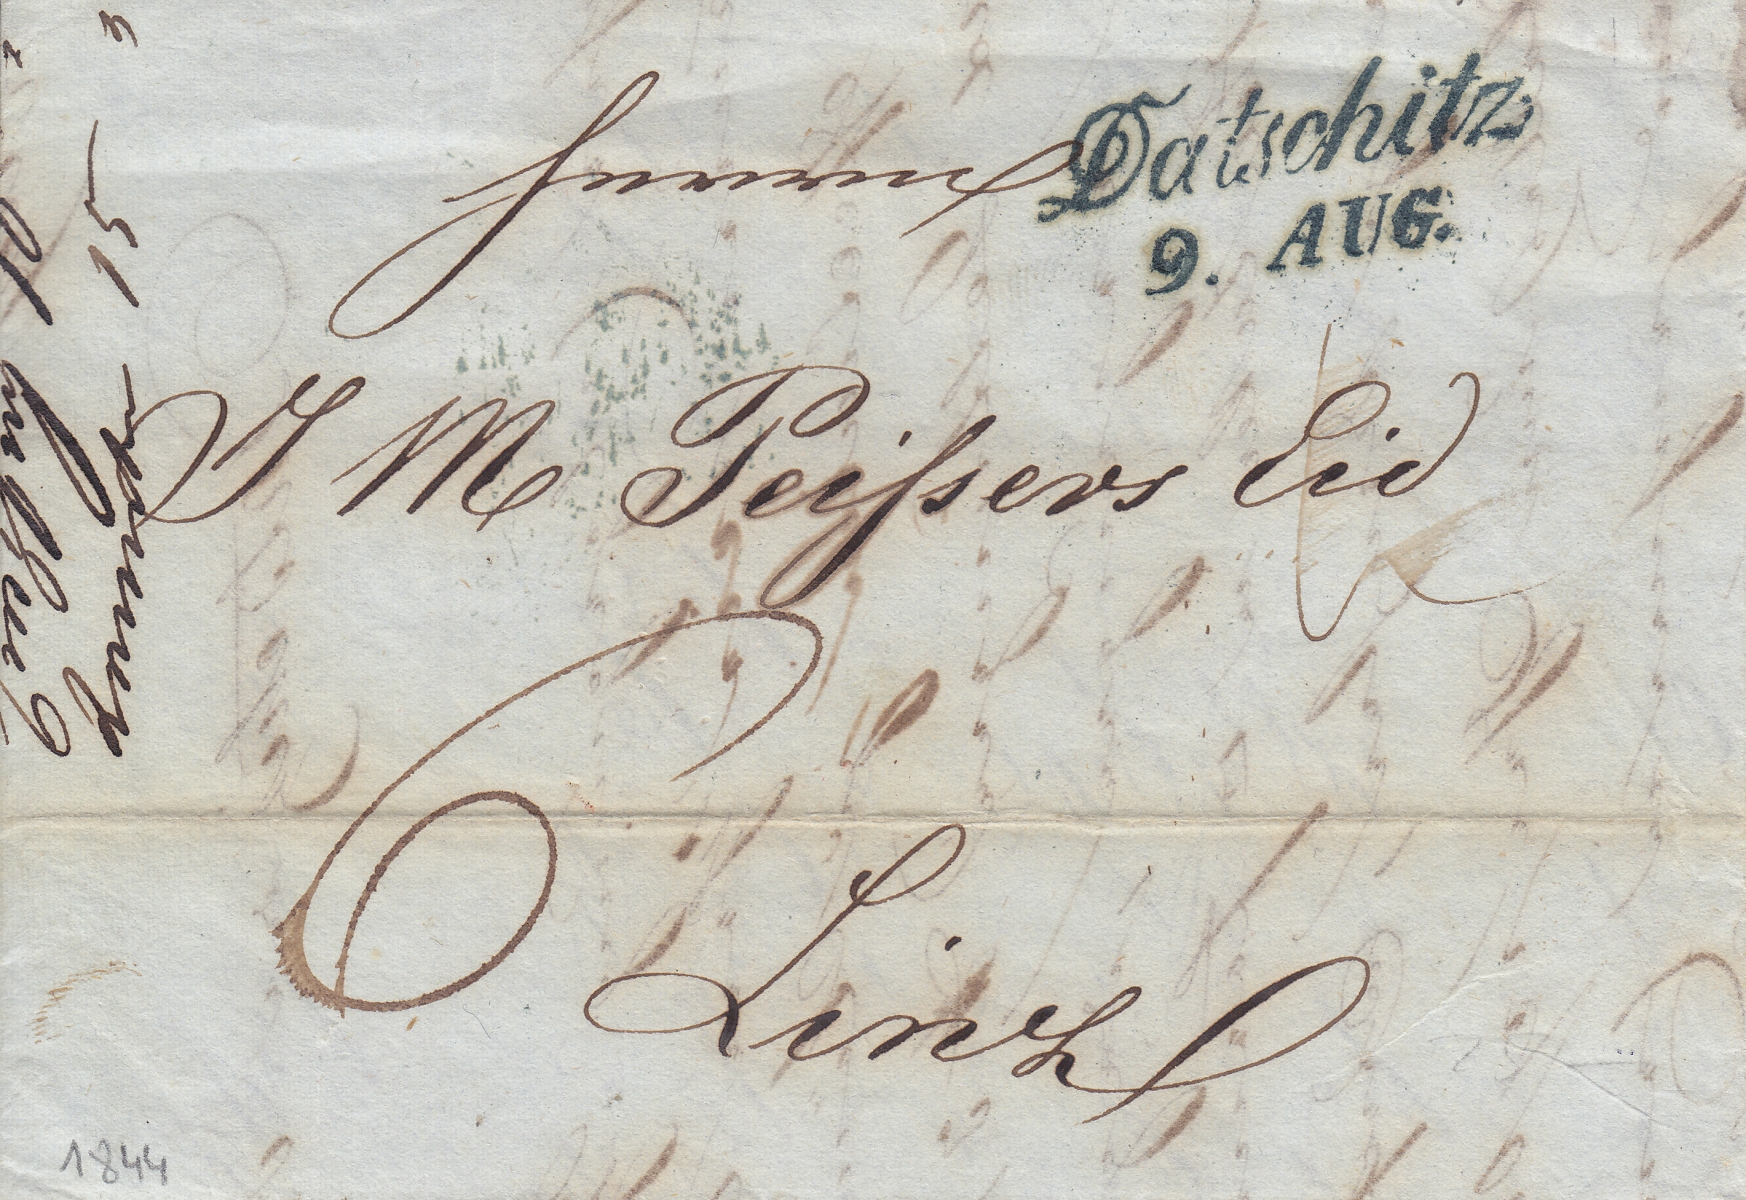 Datschitz
9. AUG.
Herrn
J M Peißers Eid
Linz
6
1844
15